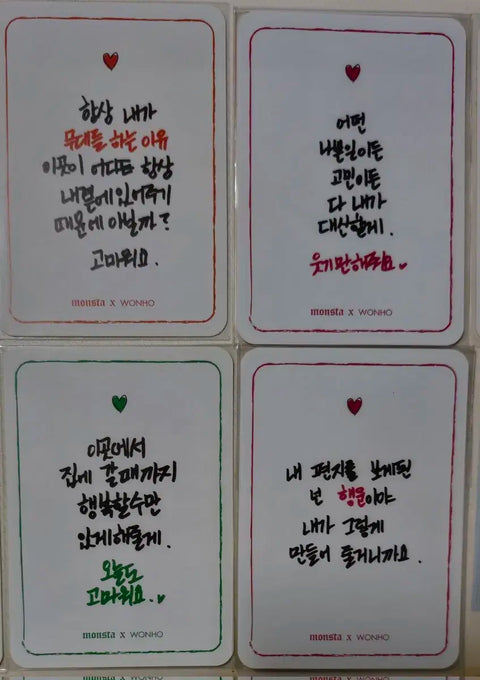 항상 내가
무대를 하는 이유
이곳이 어디든 항상
내곁에 있어주기
때문에 아닐까?
고마워요.
monsta x WONHO
어떤
나쁜일이든
고민이든
다 내가
대신할게.
웃기만해줘요
monsta x WONHO
이곳에서
집에 갈때까지
행복할수만
있게해줄게.
오늘도
고마워요.
monsta x WONHO
내 편지를 보게된
넌 행운이야
내가 그렇게
만들어 줄거니까요.
monsta x WONHO